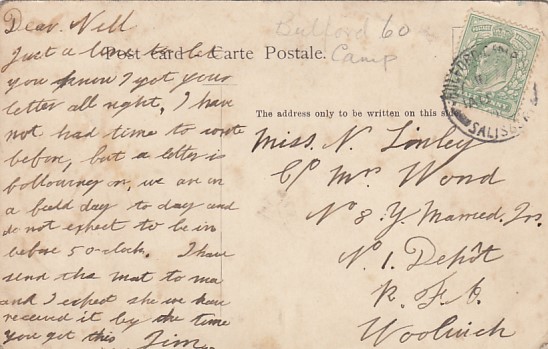 Dear Nell
Just a line to let
you know I got your
letter all right, I have
not had time to write
before, but a letter is
following on, we are in
a field day to day and
do not expect to be in
before 5 o-clock. I have
send the mat to ma
and I expect she will have
received it by the time
you get this Jim
Bulford 60
Camp
Post card — Carte Postale.
The address only to be written on this side
Miss. N. Linley
C/o Mrs Wond
No 8. Y. Married. Qrs.
No. 1. Depôt
R. F. A.
Woolwich
BULFORD CAMP
SALISBURY